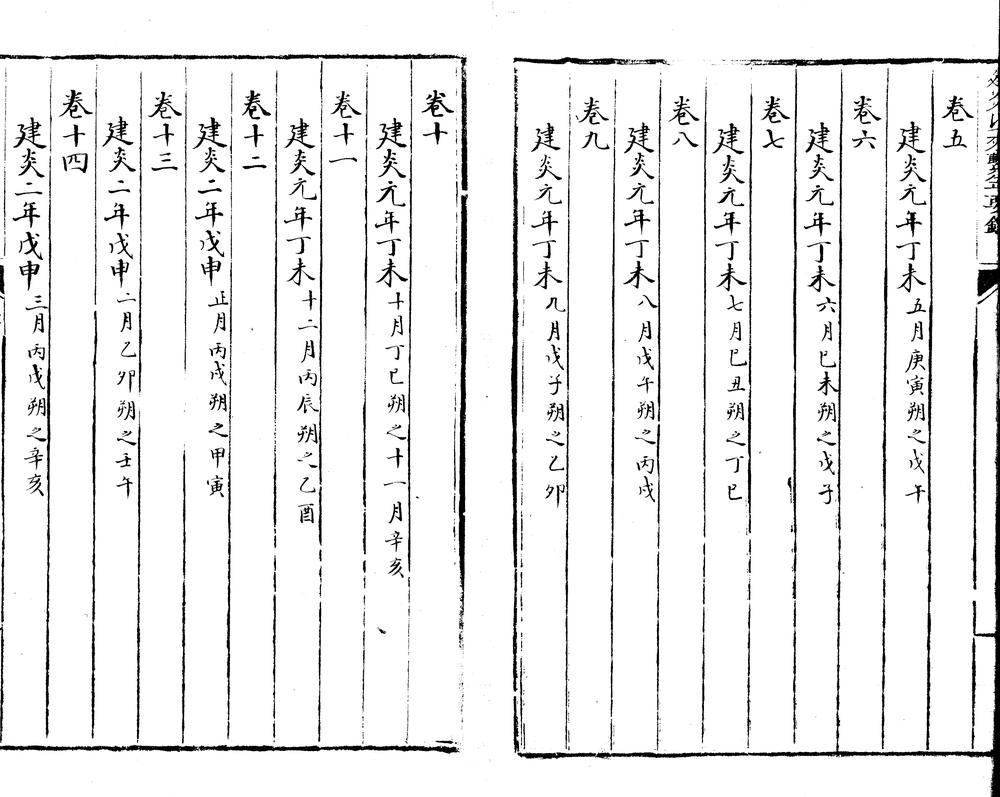 卷五
建炎元年丁未五月庚寅朔之戊午
卷六
建炎元年丁未六月巳未朔之戊子
卷七
建炎元年丁未七月巳丑朔之丁巳
卷八
建炎元年丁未八月戊午朔之丙戌
卷九
建炎元年丁未九月戊子朔之乙卯
卷十
建炎元年丁未十月丁巳朔之十一月辛亥
卷十一
建炎元年丁未十二月丙辰朔之乙酉
卷十二
建炎二年戊申正月丙戌朔之甲寅
卷十三
建炎二年戊申二月乙卯朔之壬午
卷十四
建炎二年戊申三月丙戌朔之辛亥